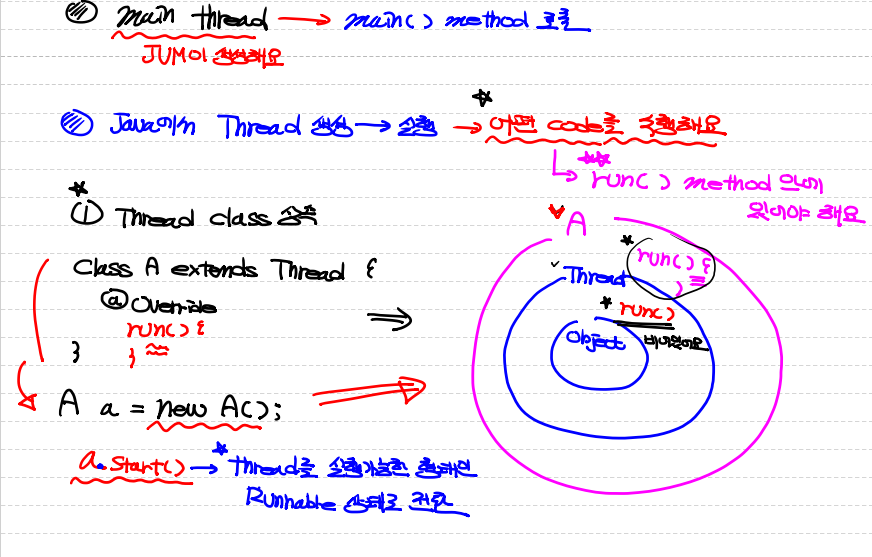 main thread → main() method 호출
JVM이 생성해요
Java에서 Thread 생성 → 실행 → 어떤 code를 수행해요
→ run() method 안에
있어야 해요
① Thread class 상속
Class A extends Thread {
@ Override
run() {
}
}
A a = new A();
a.start() → Thread를 실행가능한 형태인
Runnable 상태로 전환
A
run() {
}
Thread
run()
비어있어요
Object